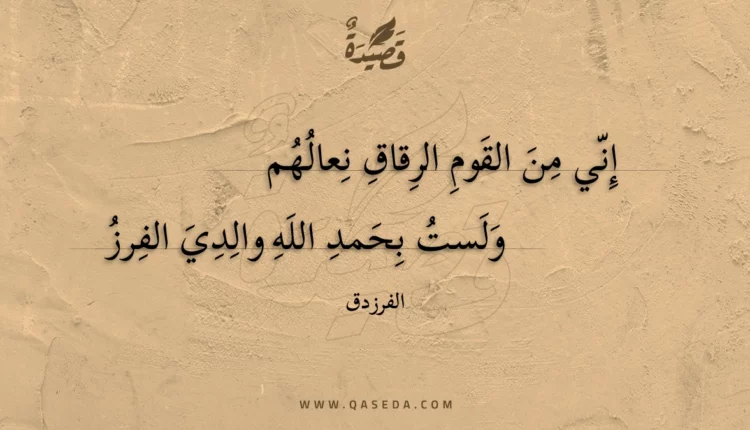 قَصِيدَةٌ
إِنّي مِنَ القَومِ الرِقاقِ نِعالُهُم
وَلَستُ بِحَمدِ اللَهِ والِدِيَ الفِرزُ
الفرزدق
WWW.QASEDA.COM